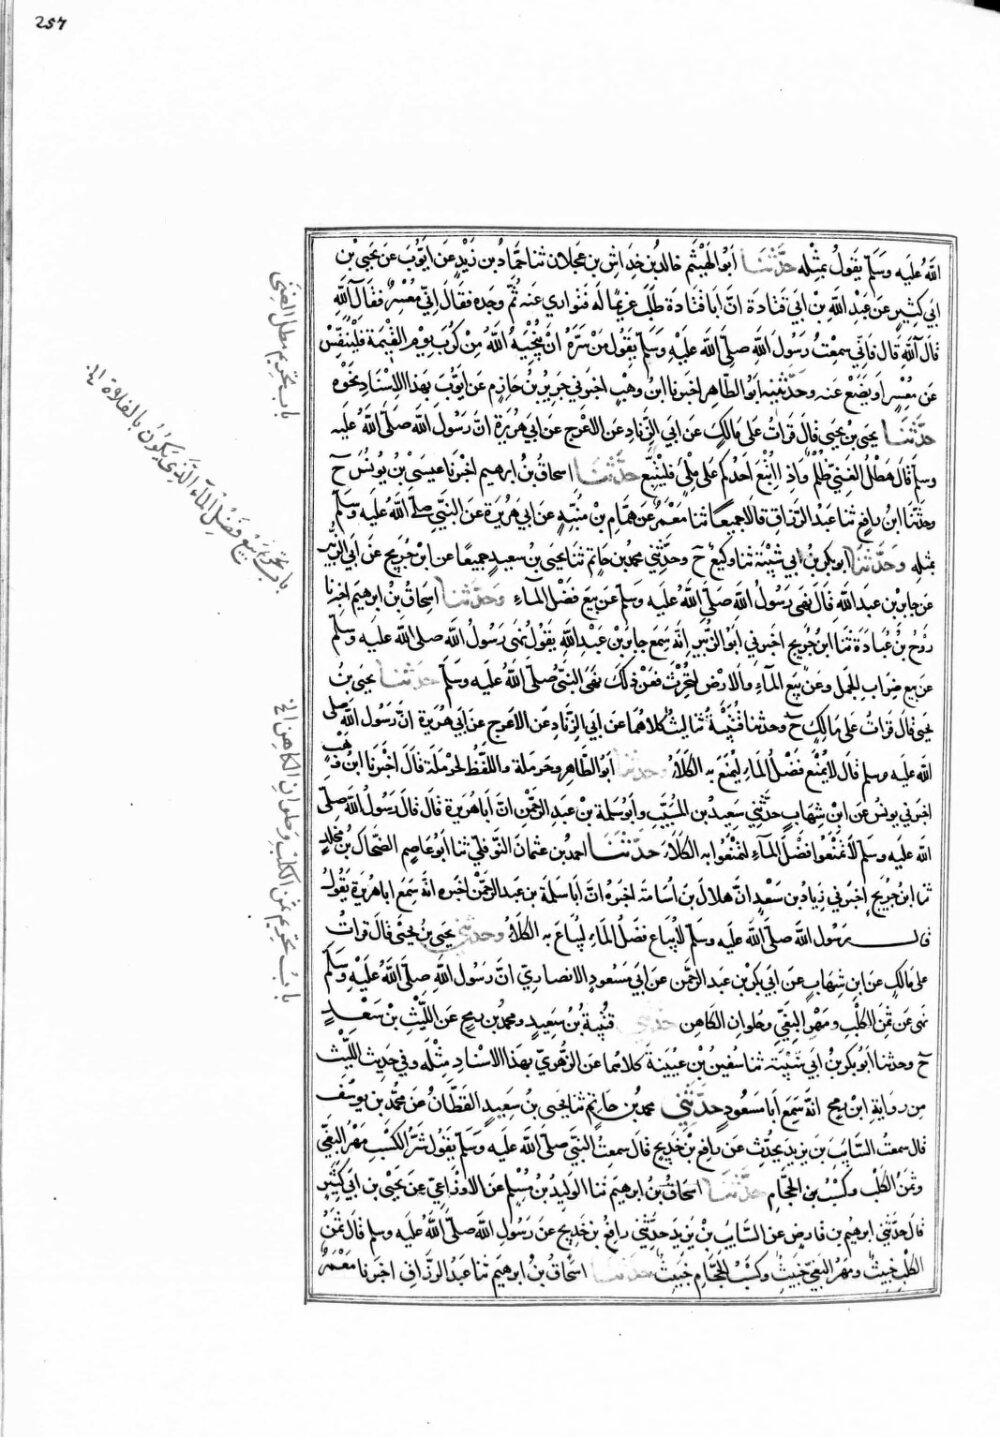 257
الله عليه وسلم يقول بمثله حدثنا ابو الهيثم خالد بن خداش بن عجلان ثنا حماد بن زيد عن ايوب عن يحيى بن
ابي كثير عن عبد الله بن ابي قتادة ان ابا قتادة طلب غريما له فتوارى عنه ثم وجده فقال اني معسر فقال آلله
قال آلله قال فاني سمعت رسول الله صلى الله عليه وسلم يقول من سره ان ينجيه الله من كرب يوم القيمة فلينفس
عن معسر او يضع عنه وحدثنيه ابو الطاهر اخبرنا ابن وهب اخبرني جرير بن حازم عن ايوب بهذا الاسناد نحوه
حدثنا يحيى بن يحيى قال قرات على مالك عن ابي الزناد عن الاعرج عن ابي هريرة ان رسول الله صلى الله عليه
وسلم قال مطل الغني ظلم واذا اتبع احدكم على ملي فليتبع حدثنا اسحاق بن ابرهيم اخبرنا عيسى بن يونس ح
وحدثنا ابن رافع ثنا عبد الرزاق قالا جميعا ثنا معمر عن همام بن منبه عن ابي هريرة عن النبي صلى الله عليه وسلم
بمثله وحدثنا ابو بكر بن ابي شيبة ثنا وكيع ح وحدثني محمد بن حاتم ثنا يحيى بن سعيد جميعا عن ابن جريج عن ابي الزبير
عن جابر بن عبد الله قال نهى رسول الله صلى الله عليه وسلم عن بيع فضل المآء وحدثنا اسحاق بن ابرهيم اخبرنا
روح بن عبادة ثنا ابن جريج اخبرني ابو الزبير انه سمع جابر بن عبد الله يقول نهى رسول الله صلى الله عليه وسلم
عن بيع ضراب الجمل وعن بيع المآء والارض لتحرث فعن ذلك نهى النبي صلى الله عليه وسلم حدثنا يحيى بن
يحيى قال قرات على مالك ح وحدثنا قتيبة ثنا ليث كلاهما عن ابي الزناد عن الاعرج عن ابي هريرة ان رسول الله صلى
الله عليه وسلم قال لا يمنع فضل الماء ليمنع به الكلأ وحدثنا ابو الطاهر وحرملة واللفظ لحرملة قال اخبرنا ابن وهب
اخبرني يونس عن ابن شهاب حدثني سعيد بن المسيب وابو سلمة بن عبد الرحمن ان ابا هريرة قال قال رسول الله صلى
الله عليه وسلم لا تمنعوا فضل المآء لتمنعوا به الكلأ حدثنا احمد بن عثمان النوفلي ثنا ابو عاصم الضحاك بن مخلد
ثنا ابن جريج اخبرني زياد بن سعد ان هلال بن اسامة اخبره ان ابا سلمة بن عبد الرحمن اخبره انه سمع ابا هريرة يقول
قال رسول الله صلى الله عليه وسلم لا يباع فضل الماء ليباع به الكلأ وحدثني يحيى بن يحيى قال قرات
على مالك عن ابن شهاب عن ابي بكر بن عبد الرحمن عن ابي مسعود الانصاري ان رسول الله صلى الله عليه وسلم
نهى عن ثمن الكلب ومهر البغي وحلوان الكاهن حدثني قتيبة بن سعيد ومحمد بن رمح عن الليث بن سعد
ح وحدثنا ابو بكر بن ابي شيبة ثنا سفين بن عيينة كلاهما عن الزهري بهذا الاسناد مثله وفي حديث الليث
من رواية ابن رمح انه سمع ابا مسعود حدثني محمد بن حاتم ثنا يحيى بن سعيد القطان عن محمد بن يوسف
قال سمعت السايب بن يزيد يحدث عن رافع بن خديج قال سمعت النبي صلى الله عليه وسلم يقول شر الكسب مهر البغي
وثمن الكلب وكسب الحجام حدثنا اسحاق بن ابرهيم ثنا الوليد بن مسلم عن الاوزاعي عن يحيى بن ابي كثير
قال حدثني ابرهيم بن قارض عن السايب بن يزيد حدثني رافع بن خديج عن رسول الله صلى الله عليه وسلم قال ثمن
الكلب خبيث ومهر البغي خبيث وكسب الحجام خبيث حدثنا اسحاق بن ابرهيم ثنا عبد الرزاق اخبرنا معمر
باب تحريم مطل الغني
باب تحريم بيع فضل المآء الذي يكون بالفلاة الخ
باب تحريم ثمن الكلب وحلوان الكاهن الخ